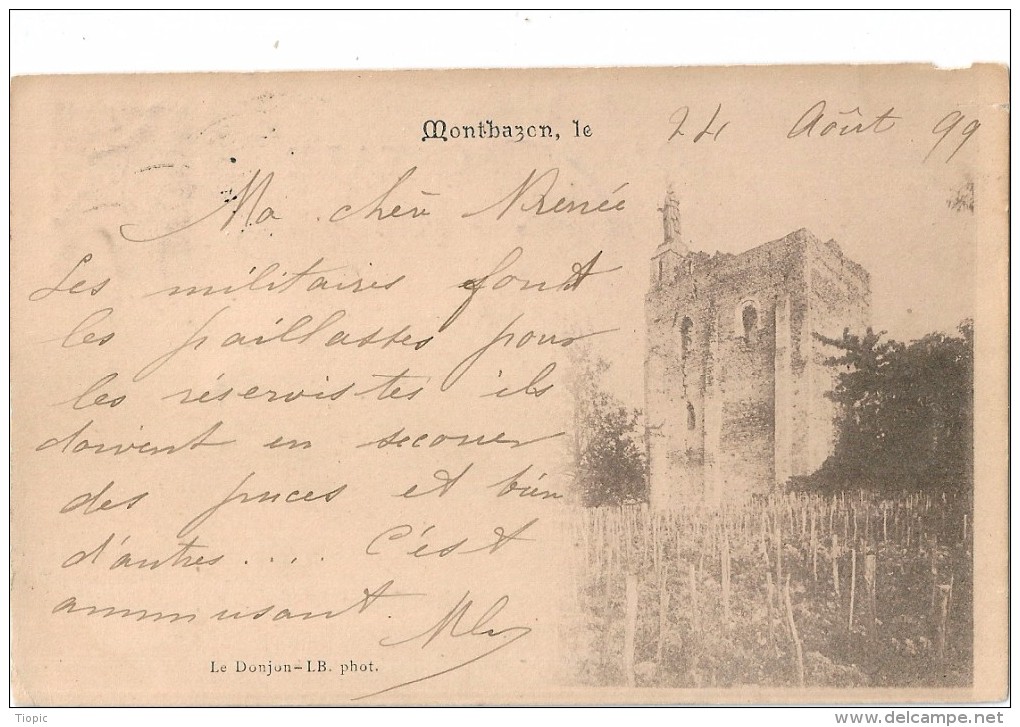 Montbazon, le 24 Août 99
Ma chèr Renée
Les militaires font
les paillasses pour
les réservistes ils
doivent en secouer
des puces et bien
d'autres.... C'est
ammusant.
Le Donjon - I.B. phot.
Tiopic
http://www.delcampe.net